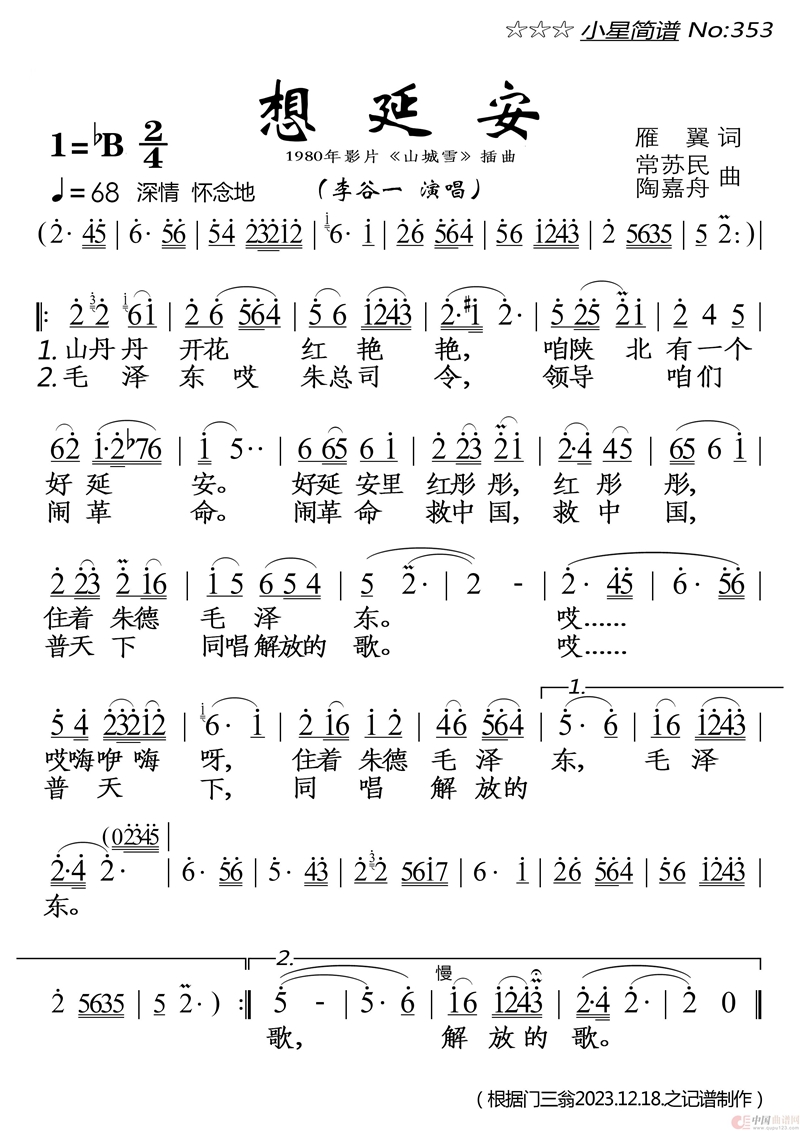 ☆☆☆ 小星简谱 No:353
想延安
1=♭B 2/4
1980年影片《山城雪》插曲
雁翼 词
常苏民
陶嘉舟 曲
♩=68 深情 怀念地
（李谷一 演唱）
(2· 45 | 6· 56 | 54 23212 | i 6· 1 | 26 564 | 56 1243 | 2 5635 | 5 2:)|
‖: 2 3 2 i 61 | 2 6 564 | 5 6 1243 | 2·#1 2· | 5 25 21 | 2 4 5 |
1.山丹丹 开花 红艳艳，咱陕北有一个
2.毛泽东哎 朱总司令，领导咱们
62 1·2♭76 | 1 5·· | 6 65 6 1 | 2 23 21 | 2·4 45 | 65 6 1 |
好延安。 好延安里红彤彤，红彤彤，
闹革命。 闹革命 救中国，救中国，
2 23 2 16 | 1 5 6 5 4 | 5 2· | 2 - | 2· 45 | 6· 56 |
住着朱德 毛泽东。 哎……
普天下 同唱解放的歌。 哎……
1.
5 4 23212 | i 6· 1 | 2 16 1 2 | 46 564 | 5· 6 | 16 1243 |
哎嗨咿嗨呀，住着朱德毛泽东，毛泽
普天下，同唱解放的
(02345 |
2·4 2· | 6· 56 | 5· 43 | 2 3 2 5617 | 6· 1 | 26 564 | 56 1243 |
东。
2.
慢
2 5635 | 5 2· ) :‖ 5 - | 5· 6 | 16 1243 | 2·4 2· | 2 0 ‖
歌，解放的歌。
（根据门三翁2023.12.18.之记谱制作）
中国曲谱网
www.qupu123.com